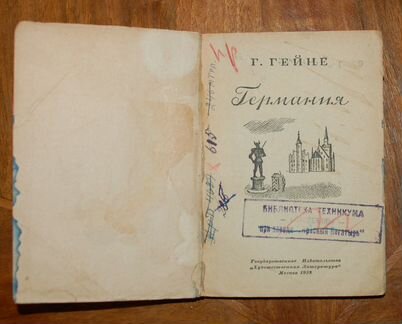 Г. ГЕЙНЕ
Германия
БИБЛИОТЕКА ТЕХНИКУМА
при заводе "Красный Богатырь"
Государственное Издательство
„Художественная Литература"
Москва 1938